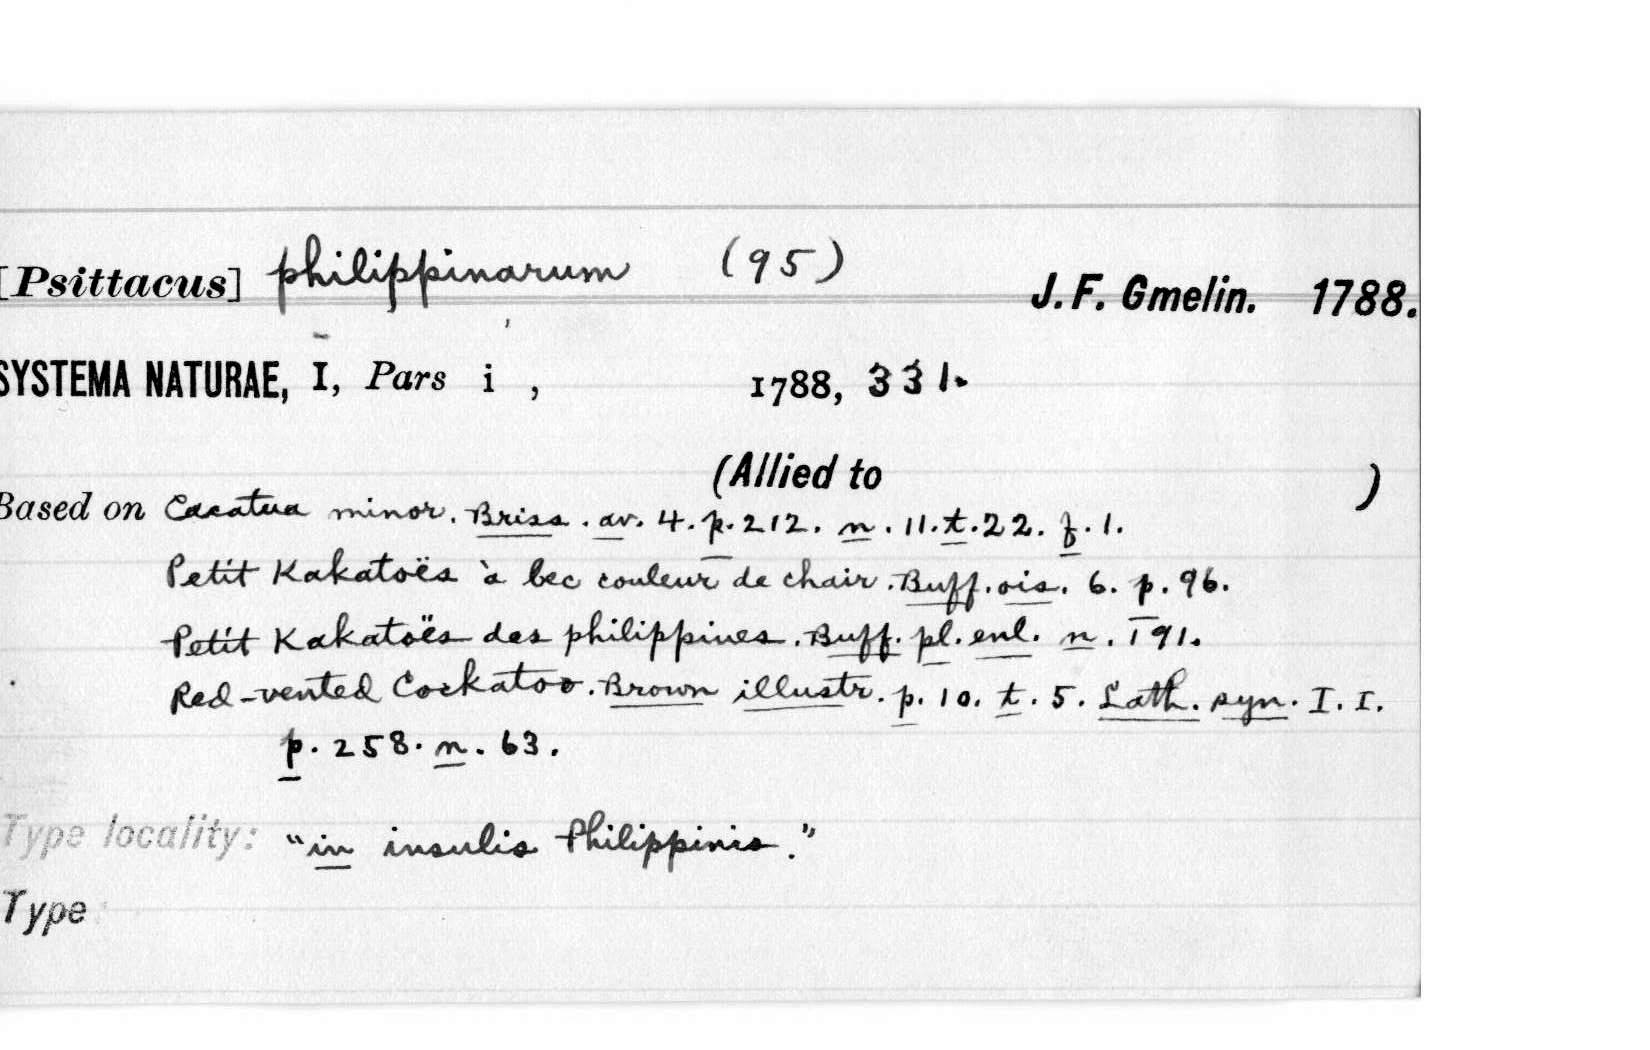 [Psittacus] philippinarum (95)
J. F. Gmelin. 1788.
SYSTEMA NATURAE, I, Pars i , 1788, 331.
(Allied to )
Based on Cacatua minor. Briss. av. 4. p. 212. n. 11. t. 22. f. 1.
Petit Kakatoës à bec couleur de chair. Buff. ois. 6. p. 96.
Petit Kakatoës des philippines. Buff. pl. enl. n. 191.
Red-vented Cockatoo. Brown illustr. p. 10. t. 5. Lath. syn. I. I.
p. 258. n. 63.
Type locality: "in insulis Philippinis."
Type